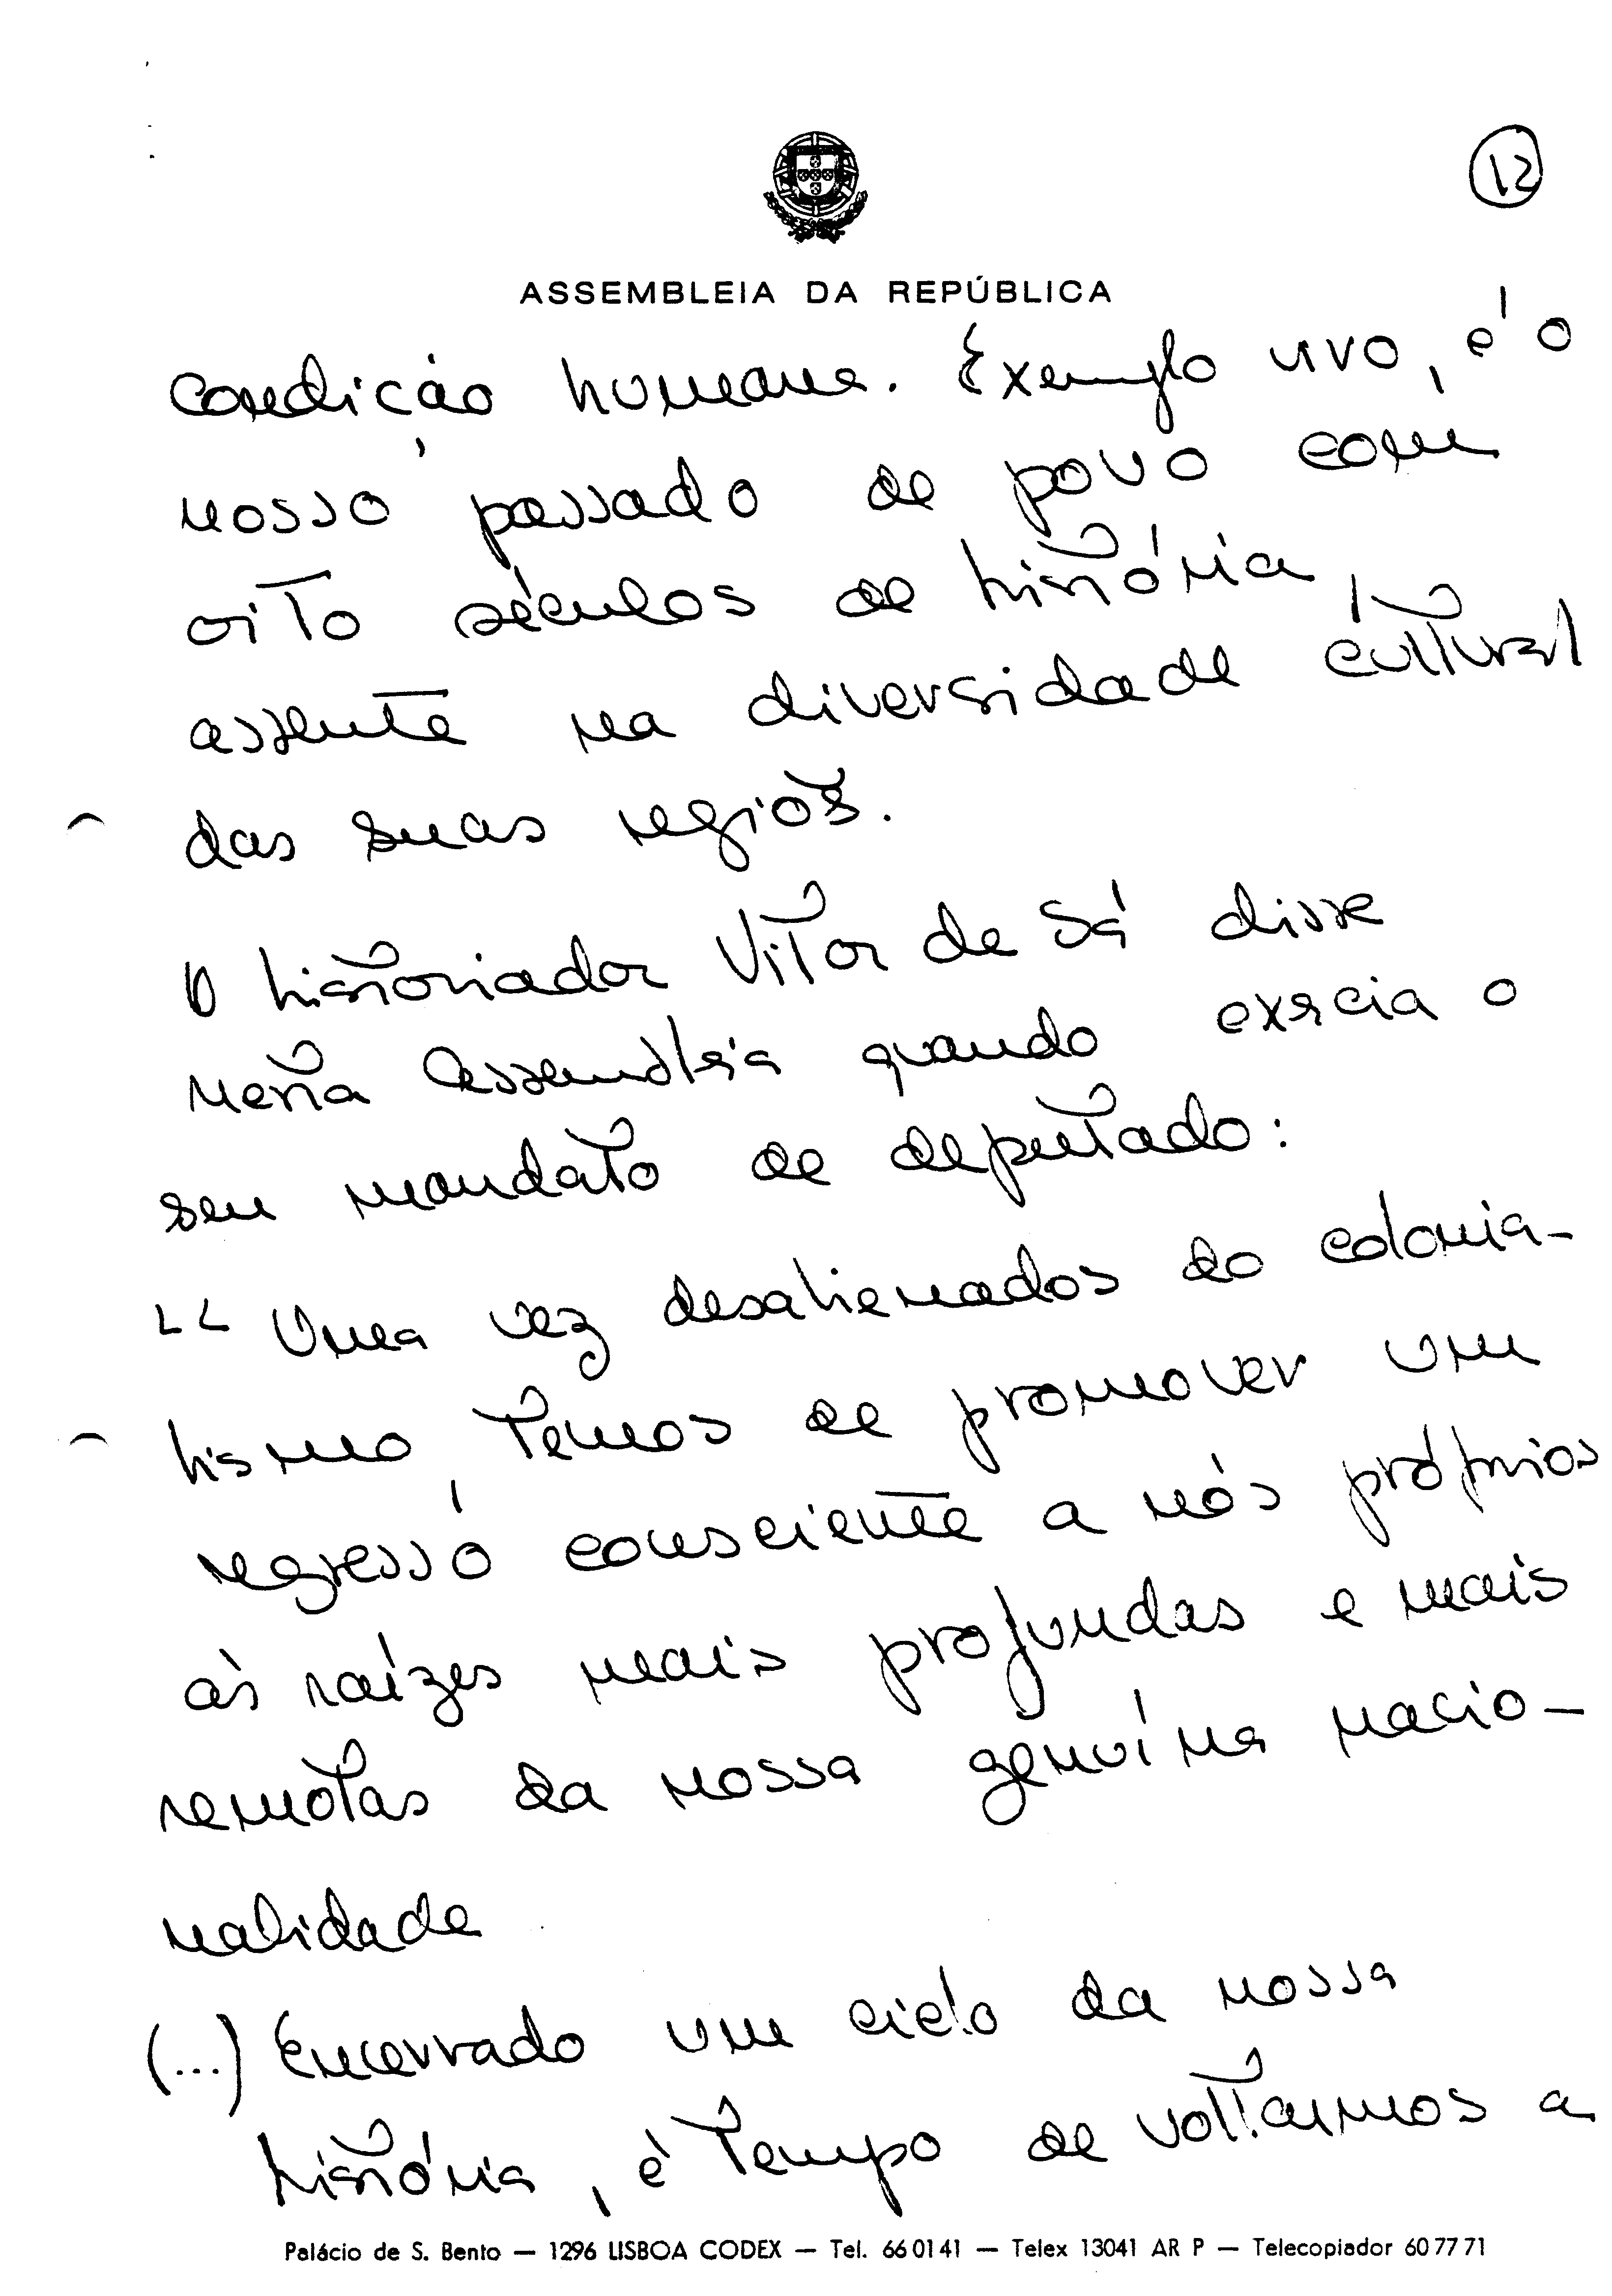 12
ASSEMBLEIA DA REPÚBLICA
condição humana. Exemplo vivo, é o
nosso passado de povo com
oito séculos de história,
assente na diversidade cultural
das suas regiões.
O historiador Vitor de Sá disse
nesta Assembleia quando exercia o
seu mandato de deputado:
"Uma vez desalienados do colonia-
lismo, temos de promover um
regresso consciente a nós próprios
às raízes mais profundas e mais
remotas da nossa genuína nacio-
nalidade
(...) Encerrado um ciclo da nossa
história, é tempo de voltarmos a
Palácio de S. Bento — 1296 LISBOA CODEX — Tel. 66 01 41 — Telex 13041 AR P — Telecopiador 60 77 71